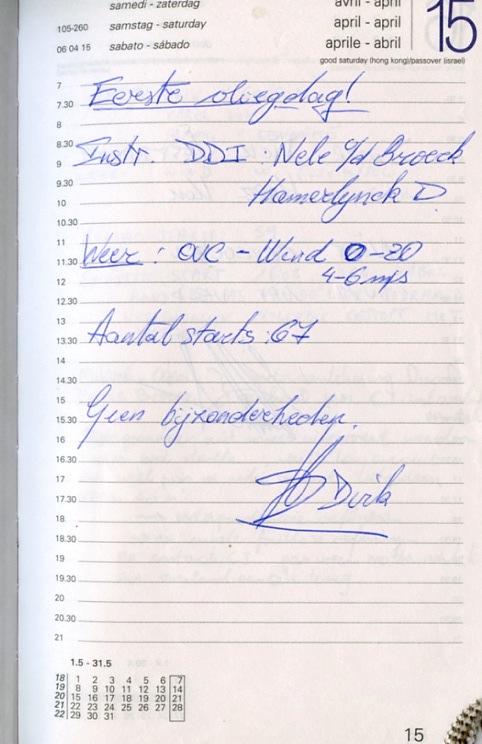 samedi - zaterdag
avril - april
105-260
samstag - saturday
april - april
15
06 04 15
sabato - sábado
aprile - abril
good saturday (hong kong)/passover (israel)
7
7.30 Eerste vliegdag!
8
8.30
9 Instr. DDI : Nele v/d Broeck
9.30
10 Hamerlynck D.
10.30
11
11.30 Weer : OVC - Wind 0-20
12 4-6 mps
12.30
13
13.30 Aantal starts : 67
14
14.30
15
15.30 Geen bijzonderheden.
16
16.30
17
17.30 Dirk
18
18.30
19
19.30
20
20.30
21
1.5 - 31.5
18 1 2 3 4 5 6 7
19 8 9 10 11 12 13 14
20 15 16 17 18 19 20 21
21 22 23 24 25 26 27 28
22 29 30 31
15